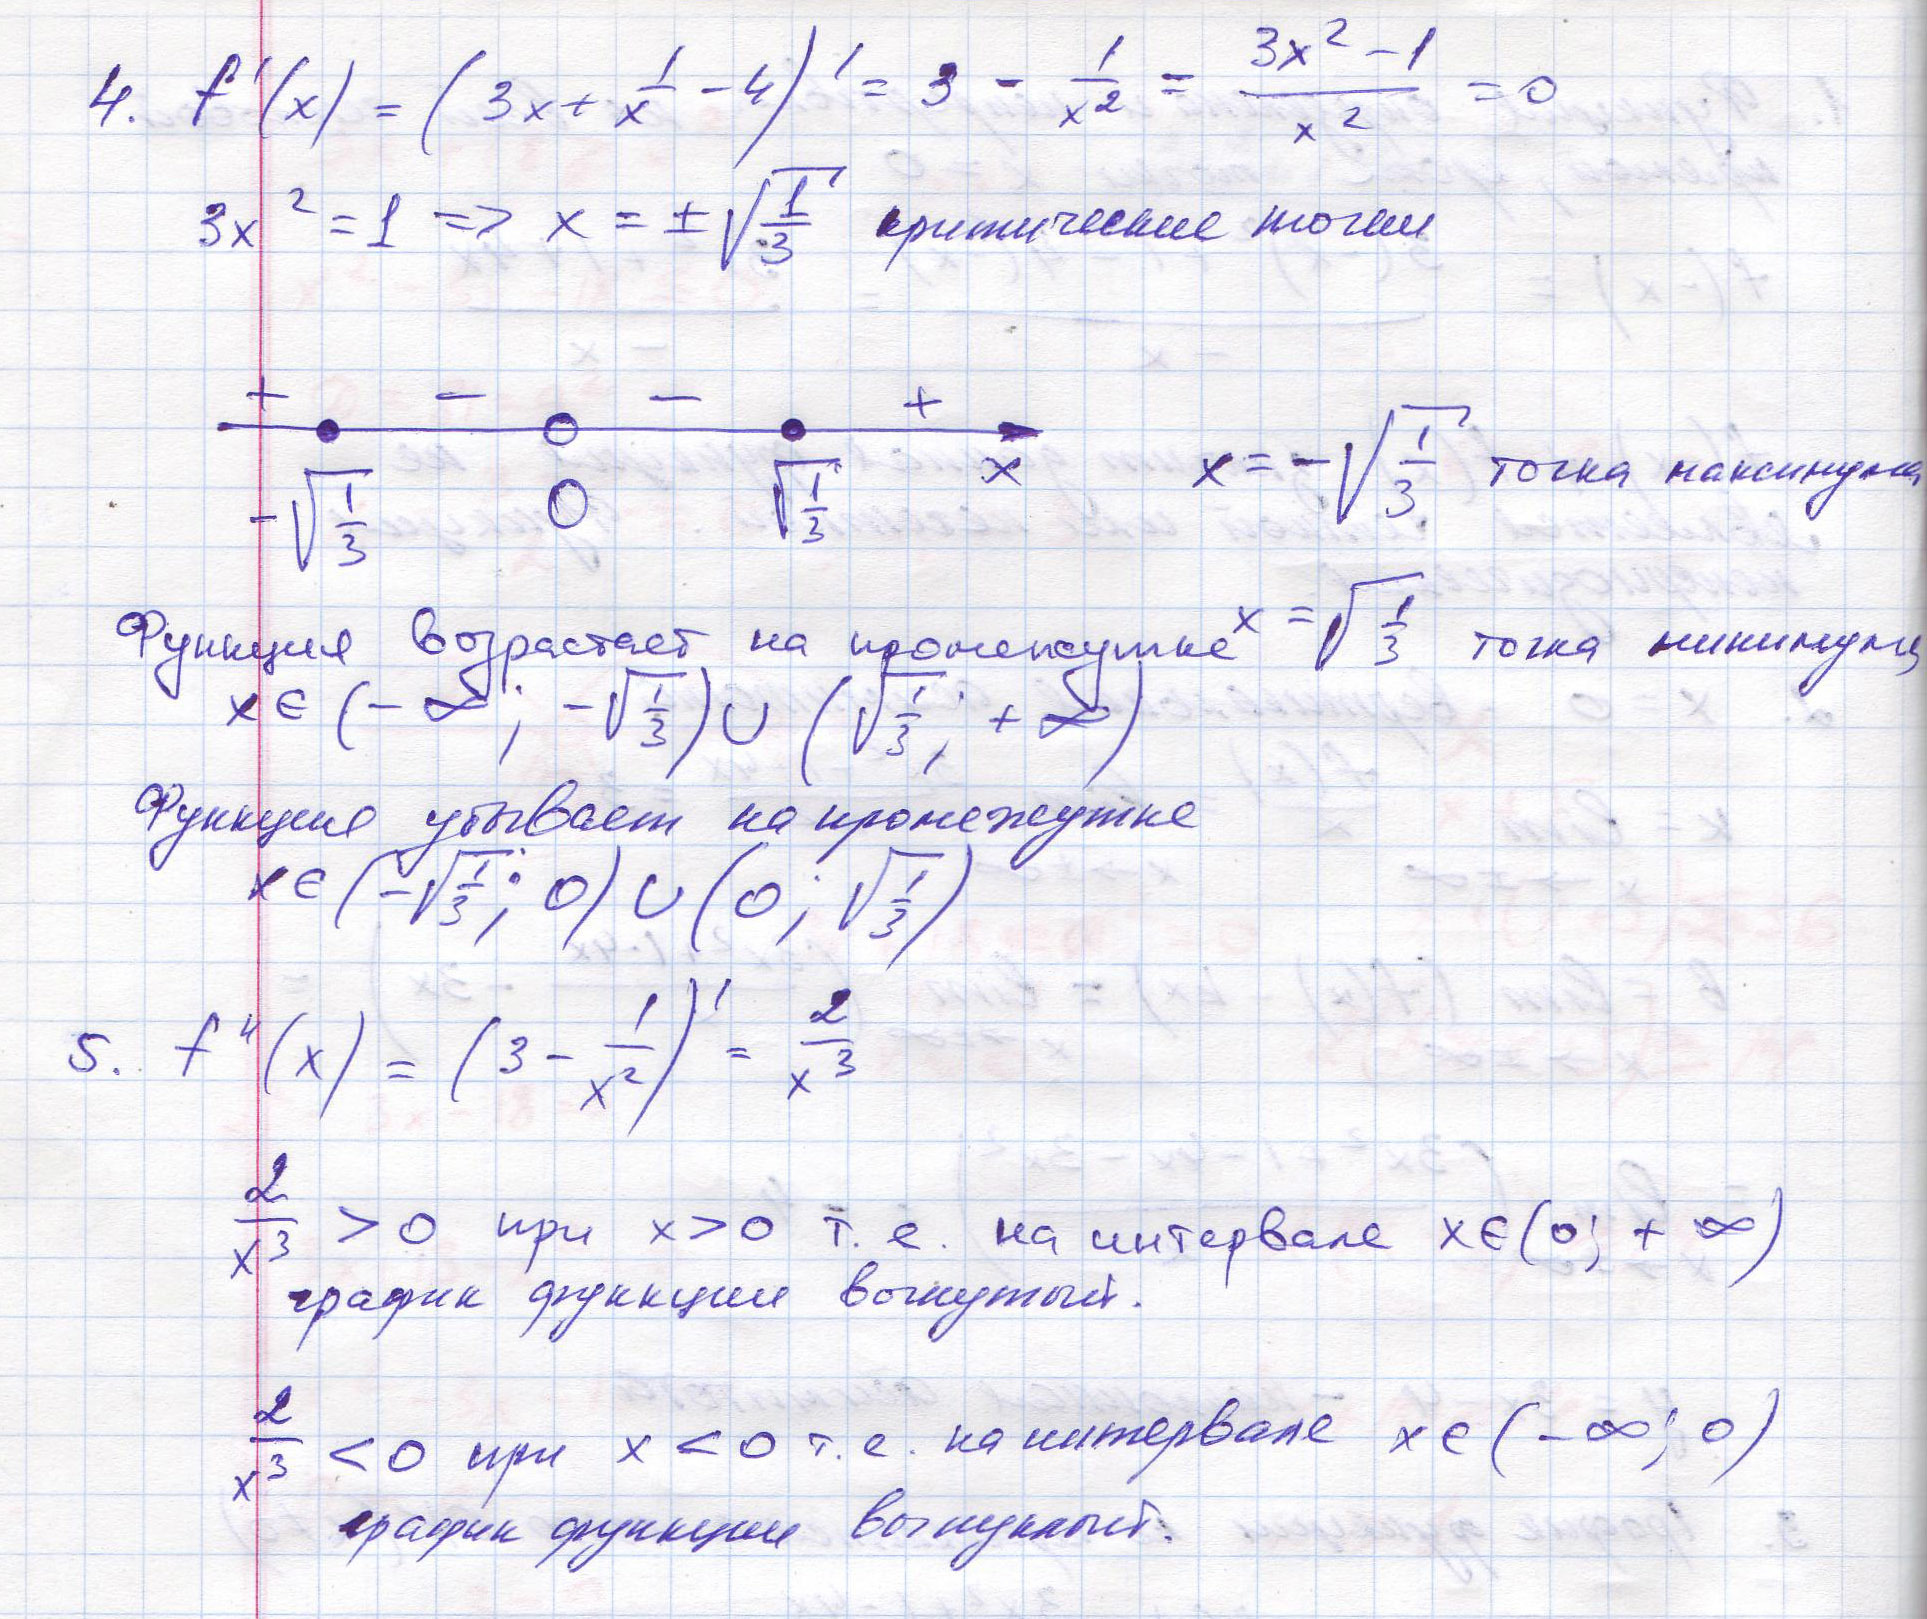 4. f'(x) = (3x + 1/x - 4)' = 3 - 1/x² = (3x² - 1)/x² = 0
3x² = 1 => x = ±√(1/3) критические точки
+ - - +
-√(1/3) 0 √(1/3) x
x = -√(1/3) точка максимума
x = √(1/3) точка минимума
Функция возрастает на промежутке
x ∈ (-∞; -√(1/3)) ∪ (√(1/3); +∞)
Функция убывает на промежутке
x ∈ (-√(1/3); 0) ∪ (0; √(1/3))
5. f''(x) = (3 - 1/x²)' = 2/x³
2/x³ > 0 при x > 0 т. е. на интервале x ∈ (0; +∞)
график функции вогнутый.
2/x³ < 0 при x < 0 т. е. на интервале x ∈ (-∞; 0)
график функции выпуклый.